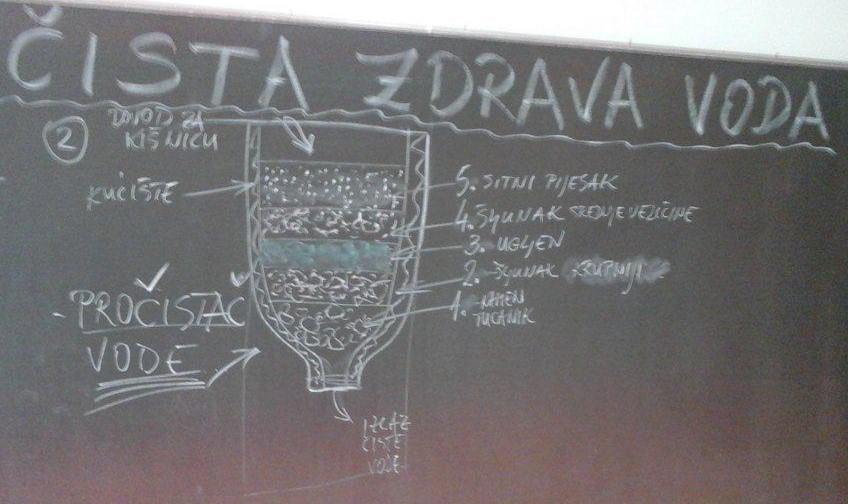 ČISTA ZDRAVA VODA
2
DOVOD ZA
KIŠNICU
KUČIŠTE
5. SITNI PIJESAK
4. ŠLJUNAK SREDNJE VELIČINE
3. UGLJEN
2. ŠLJUNAK KRUPNIJI
1. KAMEN
TUCANIK
- PROČISTAČ
VODE
IZLAZ
ČISTE
VODE